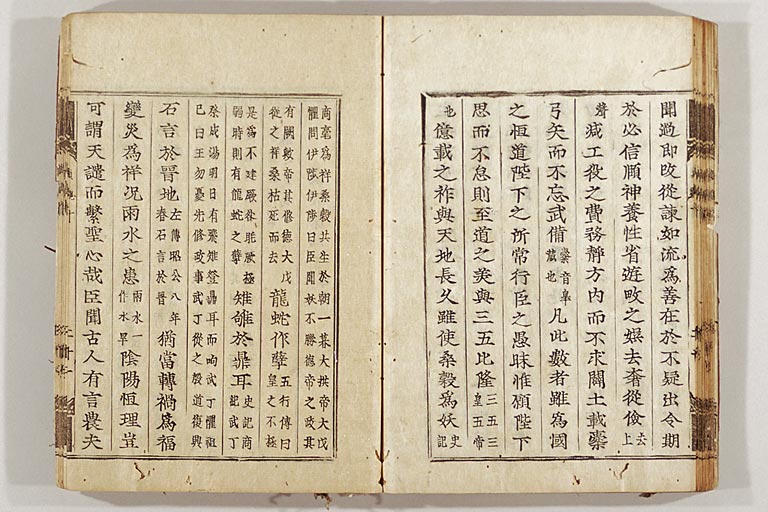 聞過即改從諫如流爲善在於不疑出令期
於必信頤神養性省遊畋之娛去奢從儉去上
聲减工役之費務靜方内而不求闢土載櫜
弓矢而不忘武備櫜音皐藏也凡此數者雖爲國
之恒道陛下之所常行臣之愚昧惟願陛下
思而不怠則至道之美與三五比隆三五三皇五帝
也億載之祚與天地長久雖使桑榖爲妖史記
商亳爲祥桑榖共生於朝一暮大拱帝大戊
懼問伊陟伊陟曰臣聞妖不勝德帝之政其
有闕歟帝其修德大戊從之祥桑枯死而去龍蛇作孽五行傳曰皇之不極
是爲不建厥咎眊厥極弱時則有龍蛇之孽雉雊於鼎耳史記商記武丁
祭成湯明日有飛雉登鼎耳而呴武丁懼祖
己曰王勿憂先修政事武丁從之殷道復興
石言於晉地左傳昭公八年春石言於晉猶當轉禍爲福
變災爲祥况雨水之患雨水一作水旱陰陽恒理豈
可謂天譴而繫聖心哉臣聞古人有言農夫